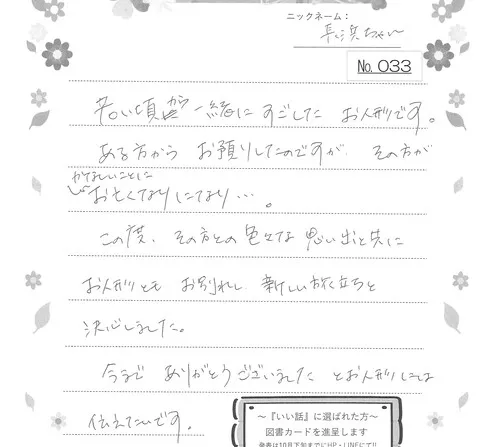 ニックネーム:
長浜ちゃん
No. 033
若い頃から一緒にすごした お人形です。
ある方から お預りしたのですが、その方が
かなしいことに
お亡くなりになり…。
この度、その方との色々な思い出と共に
お人形とも お別れし 新しい旅立ちと
決心しました。
今まで ありがとうございました とお人形には
伝えたいです。
~『いい話』に選ばれた方~
図書カードを進呈します
発表は10月下旬までにHP・LINEにて!!